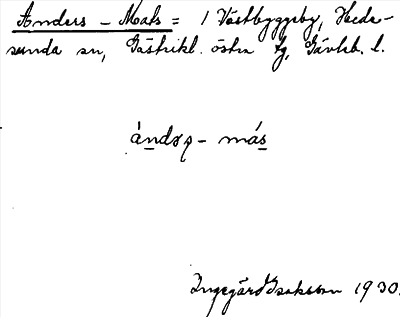 Anders - Mats = / Västbyggeby, Hede-
sunda sn, Gästrikl. östra tg, Gävleb. l.
ándəș - más
Ingegärd Isaksson 1930.